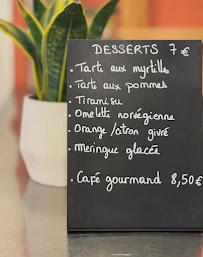 DESSERTS 7 €
. Tarte aux myrtilles
. Tarte aux pommes
. Tiramisu
. Omelette norvégienne
. Orange / citron givré
. Meringue glacée
. Café gourmand 8,50€